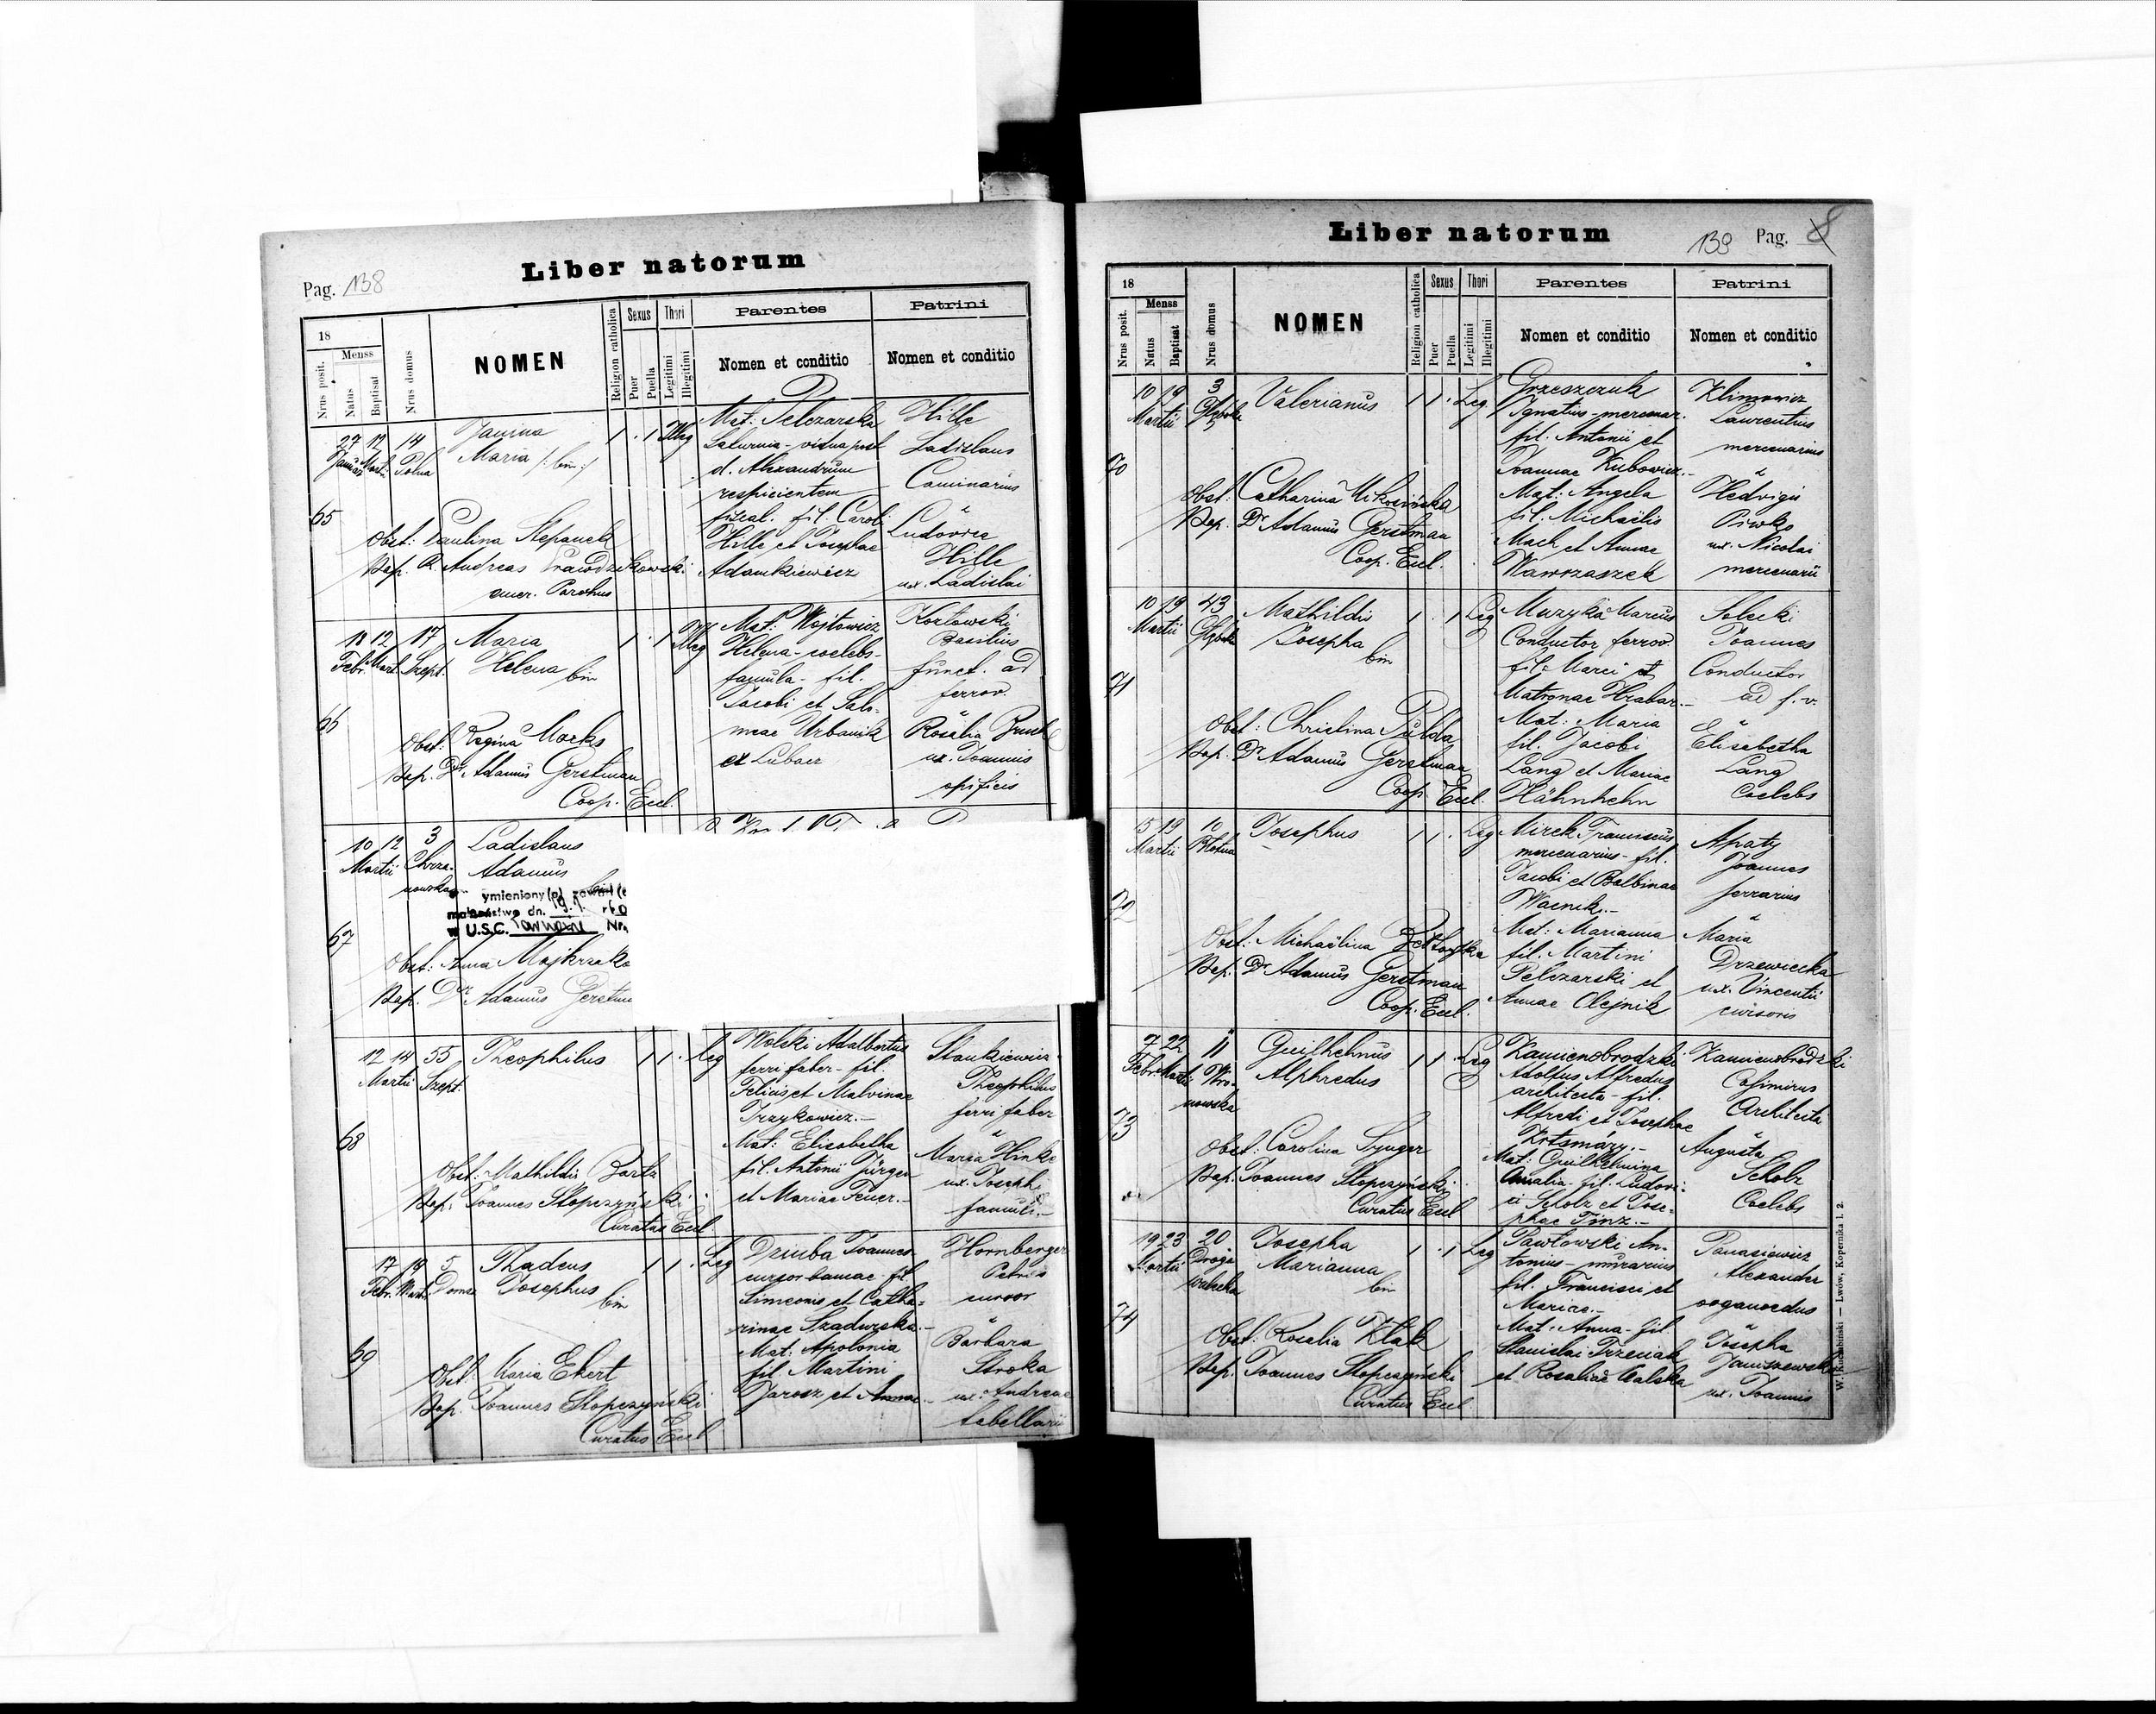 Liber natorum
Pag. 138
18
Nrus posit.
Menss
Natus
Baptisat
Nrus domus
NOMEN
Religion catholica
Sexus
Puer
Puella
Thori
Legitimi
Illegitimi
Parentes
Nomen et conditio
Patrini
Nomen et conditio
65
27 12 14
Januarii Mart. Polna
Janina
Maria /: bin :/
1 . 1 Illeg
Mat: Pelczarska
Saturnia - vidua post
d. Alexandrum
respicientem
fiscal. fil. Caroli
Hille et Josephae
Adamkiewicz
Hille
Ladislaus
Caminarius
Ludovica
Hille
ux. Ladislai
Obst: Paulina Stepanek
Bap. R. Andreas
emer. Parochus
66
18 12 17
Febr. Mart. Szept.
Maria
Helena bin
1 . 1 Illeg
Mat: Wojtowicz
Helena - coelebs -
famula - fil.
Jacobi et Salo-
meae Urbanik
ex Lubacz
Kozłowski
Basilius
funct. ad
ferrov.
Rosalia
ux. Joannis
opificis
Obst: Regina Marks
Bap. Dr Adamus Gerstman
Coop. Eccl.
67
10 12 3
Martii Chrza-
nowska
Ladislaus
Adamus
bin
ymieniony (a) zawarł (a
małżeństwo dn.
w U.S.C. Tarnow Nr.
Obst: Anna
Bap. Dr Adamus Gerstm
68
12 14 55
Martii Szept.
Theophilus
1 1 . Leg
Wolski Adalbertus
ferri faber - fil.
Felicis et Malvinae
Trzykowicz. -
Mat: Elisabetha
fil. Antonii Jürgen
et Mariae Feuer. -
Stankiewicz
Theophilus
ferri faber
Maria Hinke
ux. Josephi
famuli. -
Obst: Mathildis Bartz
Bap: Joannes Słopczyński
Curatus Eccl
69
17 19 5
Febr. Mart. Dorna
Thadeus
Josephus
bin
1 1 . Leg
Dziuba Joannes
cursor bancae fil.
Simeonis et Catha-
rinae Szadurska. -
Mat: Apolonia
fil Martini
Jarosz et Annae -
Hornberger
Petrus
cursor
Barbara
Stroka
ux. Andreae
tabellarii
Obst: Maria Ekert
Bap. Joannes Słopczyński
Curatus Eccl
Liber natorum
139 Pag. 8
18
Nrus posit.
Menss
Natus
Baptisat
Nrus domus
NOMEN
Religion catholica
Sexus
Puer
Puella
Thori
Legitimi
Illegitimi
Parentes
Nomen et conditio
Patrini
Nomen et conditio
70
10 19 3
Martii Głęboka
Valerianus
1 1 . Leg
Grzeszczuk
Ignatius - mercenar.
fil. Antonii et
Joannae Kubowicz. -
Mat: Angela
fil. Michaëlis
Mach et Annae
Wawrzaszek
Klimowicz
Laurentius
mercenarius
Hedvigis
Piwko
ux. Nicolai
mercenarii
Obst: Catharina
Bap. Dr Adamus Gerstman
Coop. Eccl.
71
10 19 43
Martii Głęboka
Mathildis
Josepha
bin
1 . 1 Leg
Muzyka Marcus
Conductor ferrov.
fil. Marci et
Matronae Hrabar. -
Mat: Maria
fil. Jacobi
Lang et Mariae
Hähnhehn
Solecki
Joannes
Conductor
ad f. v.
Elisabetha
Lang
Coelebs
Obst: Christina Pulda
Bap. Dr Adamus Gerstman
Coop. Eccl.
72
15 19 10
Martii Błotna
Josephus
1 1 . Leg
Mirek Franciscus
mercenarius - fil.
Jacobi et Balbinae
Wacnik. -
Mat: Marianna
fil. Martini
Pelczarski et
Annae Olejnik
Apaty
Joannes
ferrarius
Maria
Drzewiecka
ux. Vincentii
Obst: Michaëlina
Bap. Dr Adamus Gerstman
Coop. Eccl.
73
7 22 11
Febr. Martii Wro-
nowska
Guilhelmus
Alphredus
1 1 . Leg
Kamienobrodzki
Adolfus Alfredus
architecta - fil.
Alfredi et Josephae
Krtsmáry. -
Mat: Guilhelmina
Amalia - fil. Ludovi-
ci Scholz et Jose-
phae Tinz. -
Kamienobrodzki
Casimirus
Architecta
Augusta
Scholz
Coelebs
Obst: Carolina
Bap. Joannes Słopczyński
Curatus Eccl
74
19 23 20
Martii Droga
wulecka
Josepha
Marianna
bin
1 . 1 Leg
Pawłowski An-
tonius - murarius
fil. Francisci et
Mariae. -
Mat: Anna - fil.
Stanislai Trzeciak
et Rosaliae Walska
Panasiewicz
Alexander
Josepha
Janiszewska
ux. Joannis
Obst: Rosalia Ktak
Bap. Joannes Słopczyński
Curatus Eccl
W. Kuczabiński — Lwów, Kopernika l. 2.